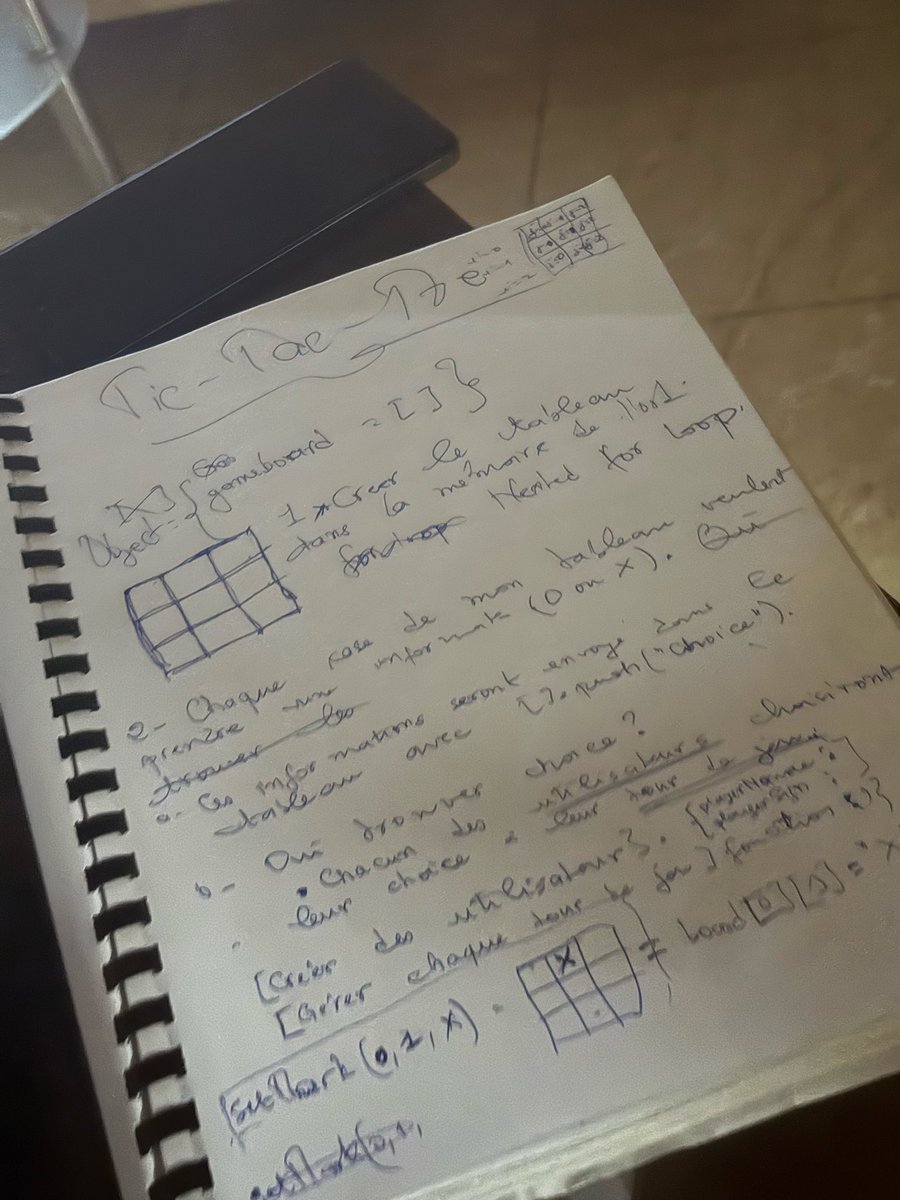 Tic-Tac-Toe
gameboard = [ ] }
Object = {
1 Créer le tableau
dans la mémoire de l'ord.
Nested for loop.
2- Chaque case de mon tableau veulent
prendre une informat (O ou X). Où
trouver les
a- Ces informations seront envoyé dans ce
tableau avec [].push("choice").
b- Où trouver choice?
• Chacun des utilisateurs choisiront
leur choice à leur tour de
{playerName:
playerSign: }
[Créer des utilisateurs].
[Gérer chaque tour de jeu] fonction
X
setMark(0,1,X)
board[0][1]="X"
setMark(0,1,